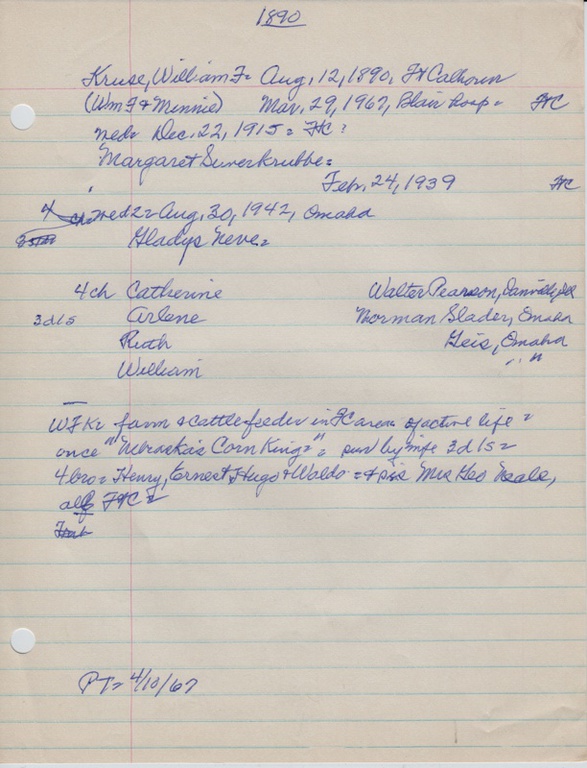 1890
Kruse, William F = Aug, 12, 1890, Ft Calhoun
(Wm F & Minnie) Mar. 29, 1967, Blair hosp = FtC
wed = Dec. 22, 1915 = FtC
Margaret Suverkrubbe =
Feb. 24, 1939 FtC
4 ch wed 2 = Aug, 30, 1942, Omaha
Gladys Neve =
4 ch Catherine Walter Pearson, Danville, Ill
3d 1s Arlene Norman Slader, Omaha
Ruth Geis, Omaha
William " "
WFK = farm & cattle feeder in FC area of active life =
once "Nebraska's Corn King" = surv by wife 3d 1s =
4 bro = Henry, Ernest, Hugo & Waldo = & sis Mrs Geo Neale,
all of FtC =
PT = 4/10/67